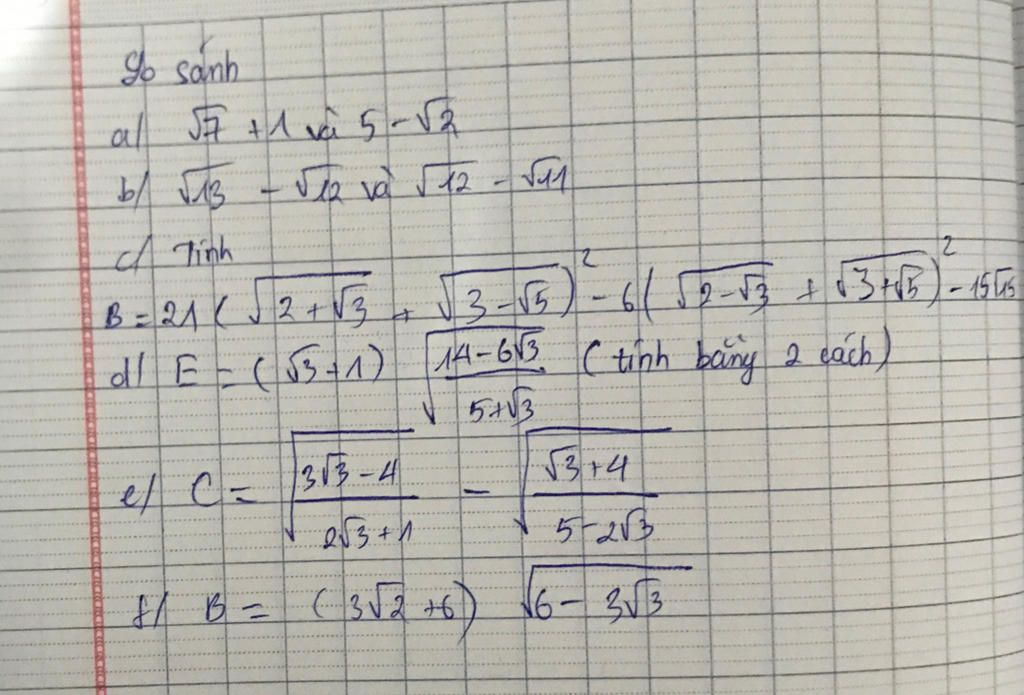 So sánh
a/ √7 + 1 và 5 - √2
b/ √13 - √12 và √12 - √11
c/ Tính
B = 21 (√(2 + √3) + √(3 - √5))² - 6(√(2 - √3) + √(3 + √5))² - 15√15
d/ E = (√3 + 1) √((14 - 6√3)/(5 + √3)) (tính bằng 2 cách)
e/ C = √((3√3 - 4)/(2√3 + 1)) - √((√3 + 4)/(5 - 2√3))
f/ B = (3√2 + 6) √(6 - 3√3)